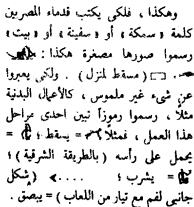 وهكذا ، فلكى يكتب قدماء المصريين
كلمة « سمكة » أو « سفينة » أو « بيت »
رسموا صورها مصغرة هكذا :
( مسقط لمنزل ) . ولكى يعبروا
عن شىء غير ملموس ، كالأعمال البدنية
مثلا ، رسموا رموزاً تبين احدى مراحل
هذا العمل ، فمثلا = يسقط ؛
يحمل على رأسه ( بالطريقة الشرقية ) ؛
= يشرب ؛ ( شكل
جانبى لفم مع تيار من اللعاب ) = يبصق .